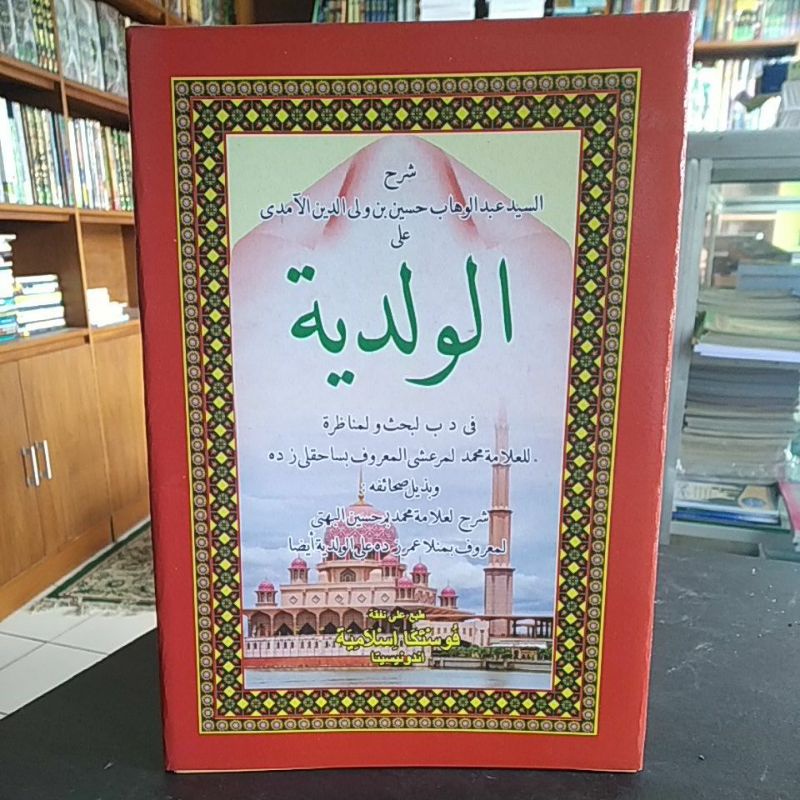 شرح
السيد عبد الوهاب حسين بن ولى الدين الآمدى
على
الولدية
فى د ب لبحث و لمناظرة
للعلامة محمد لمرعشى المعروف بساحقلى ز ده
وبذيل صحائفه :
شرح لعلامة محمد بن حسين البهتى
لمعروف بمنلا عمر ز ده على الولدية أيضا
طبع على نفقة
فوستكا إسلامية
اندونيسيا